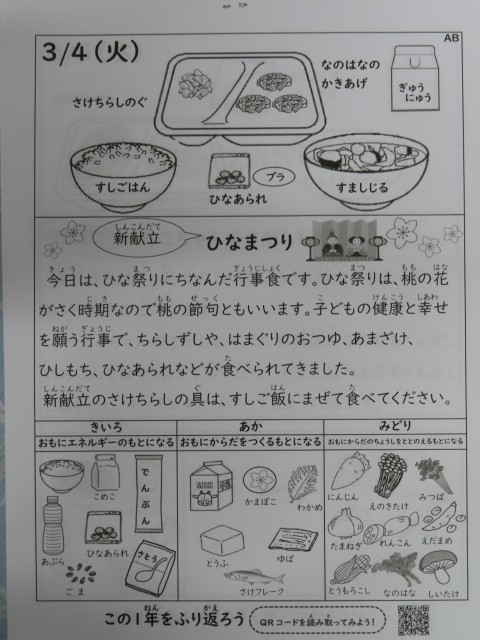 AB
3/4(火)
なのはなの
かきあげ
ぎゅう
にゅう
さけちらしのぐ
すしごはん
プラ
ひなあられ
すましじる
しんこんだて
新献立
ひなまつり
きょう まつ ぎょうじしょく まつ もも はな
今日は、ひな祭りにちなんだ行事食です。ひな祭りは、桃の花
じき もも せっく こ けんこう しあわ
がさく時期なので桃の節句ともいいます。子どもの健康と幸せ
ねが ぎょうじ
を願う行事で、ちらしずしや、はまぐりのおつゆ、あまざけ、
た
ひしもち、ひなあられなどが食べられてきました。
しんこんだて ぐ はん た
新献立のさけちらしの具は、すしご飯にまぜて食べてください。
きいろ
おもにエネルギーのもとになる
こめこ
でんぷん
あぶら
ひなあられ
ごま
さとう
あか
おもにからだをつくるもとになる
MILK
かまぼこ
わかめ
とうふ
ゆば
さけフレーク
みどり
おもにからだのちょうしをととのえるもとになる
にんじん
えのきたけ
みつば
たまねぎ
れんこん
えだまめ
とうもろこし
なのはな
しいたけ
ねん かえ
この1年をふり返ろう
QRコードを読み取ってみよう!